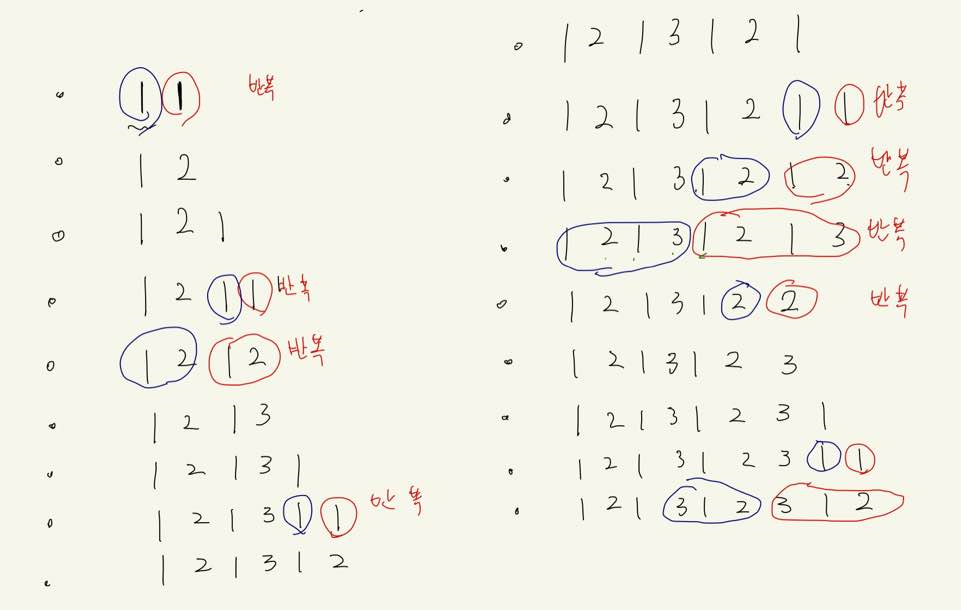 1 1 반복
1 2
1 2 1
1 2 1 1 반복
1 2 1 2 반복
1 2 1 3
1 2 1 3 1
1 2 1 3 1 1 반복
1 2 1 3 1 2
1 2 1 3 1 2 1
1 2 1 3 1 2 1 1 반복
1 2 1 3 1 2 1 2 반복
1 2 1 3 1 2 1 3 반복
1 2 1 3 1 2 2 반복
1 2 1 3 1 2 3
1 2 1 3 1 2 3 1
1 2 1 3 1 2 3 1 1
1 2 1 3 1 2 3 1 2